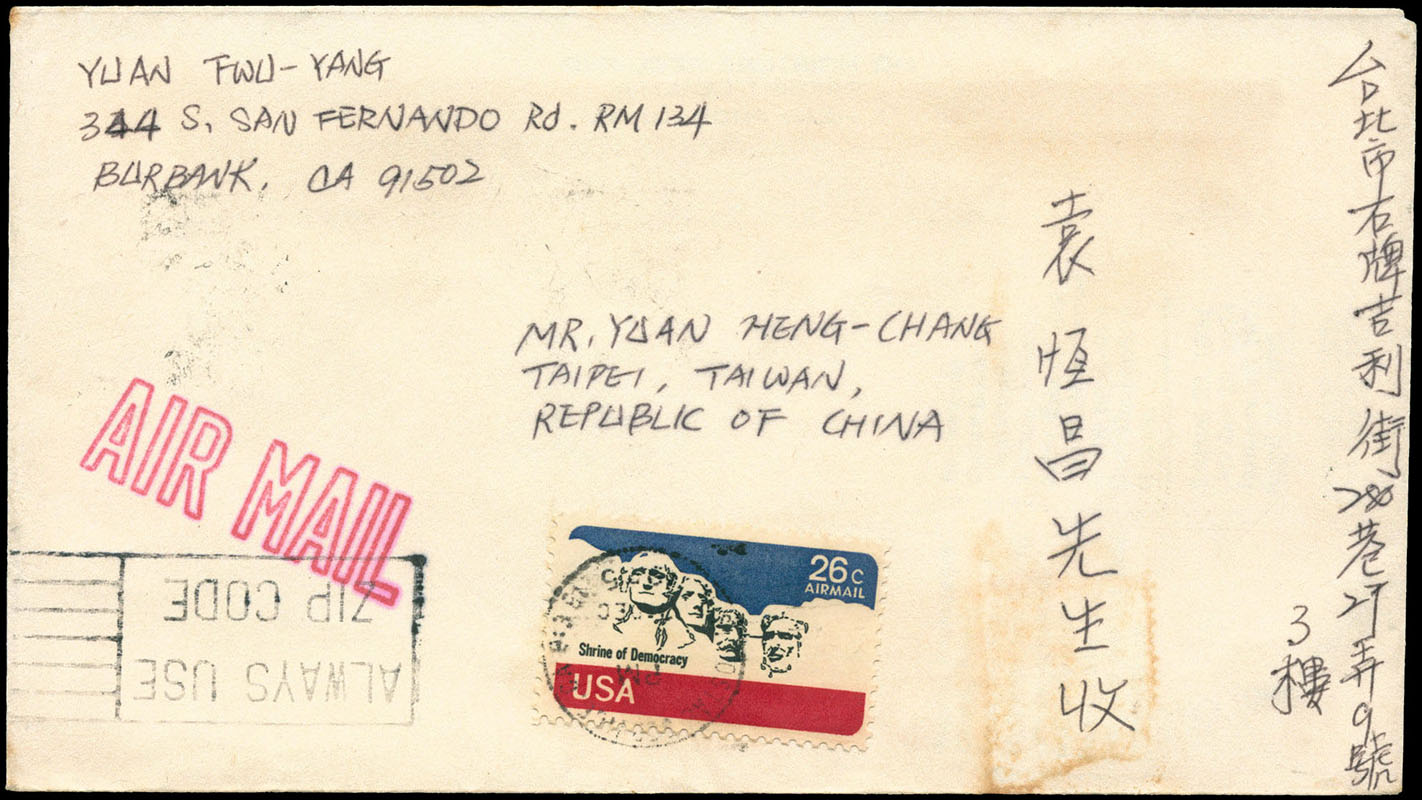 YUAN FWU-YANG
344 S. SAN FERNANDO Rd. RM 134
BURBANK, CA 91502
MR. YUAN HENG-CHANG
TAIPEI, TAIWAN,
REPUBLIC OF CHINA
台北市石牌吉利街280巷27弄9號
3樓
袁恒昌先生收
AIR MAIL
ALWAYS USE
ZIP CODE
26c
AIRMAIL
Shrine of Democracy
USA
PM